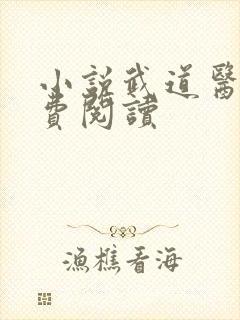 小說武道醫
費閱讀
漁樵看海